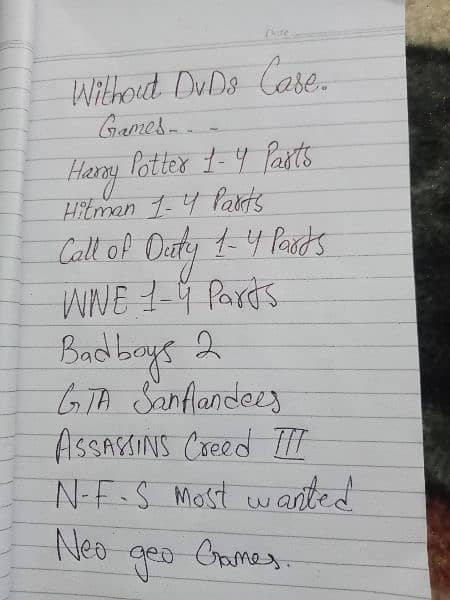 Date
Without DvDs Case.
Games- - -
Harry Potter 1-4 Parts
Hitman 1-4 Parts
Call of Duty 1-4 Parts
WNE 1-4 Parts
Badboys 2
GTA Sanflandees
ASSASSINS Creed III
N-F-S Most wanted
Neo geo Games.